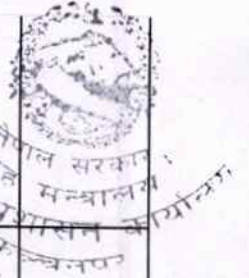 नेपाल सरकार
मन्त्रालय
प्रशासन कार्यालय
कञ्चनपुर